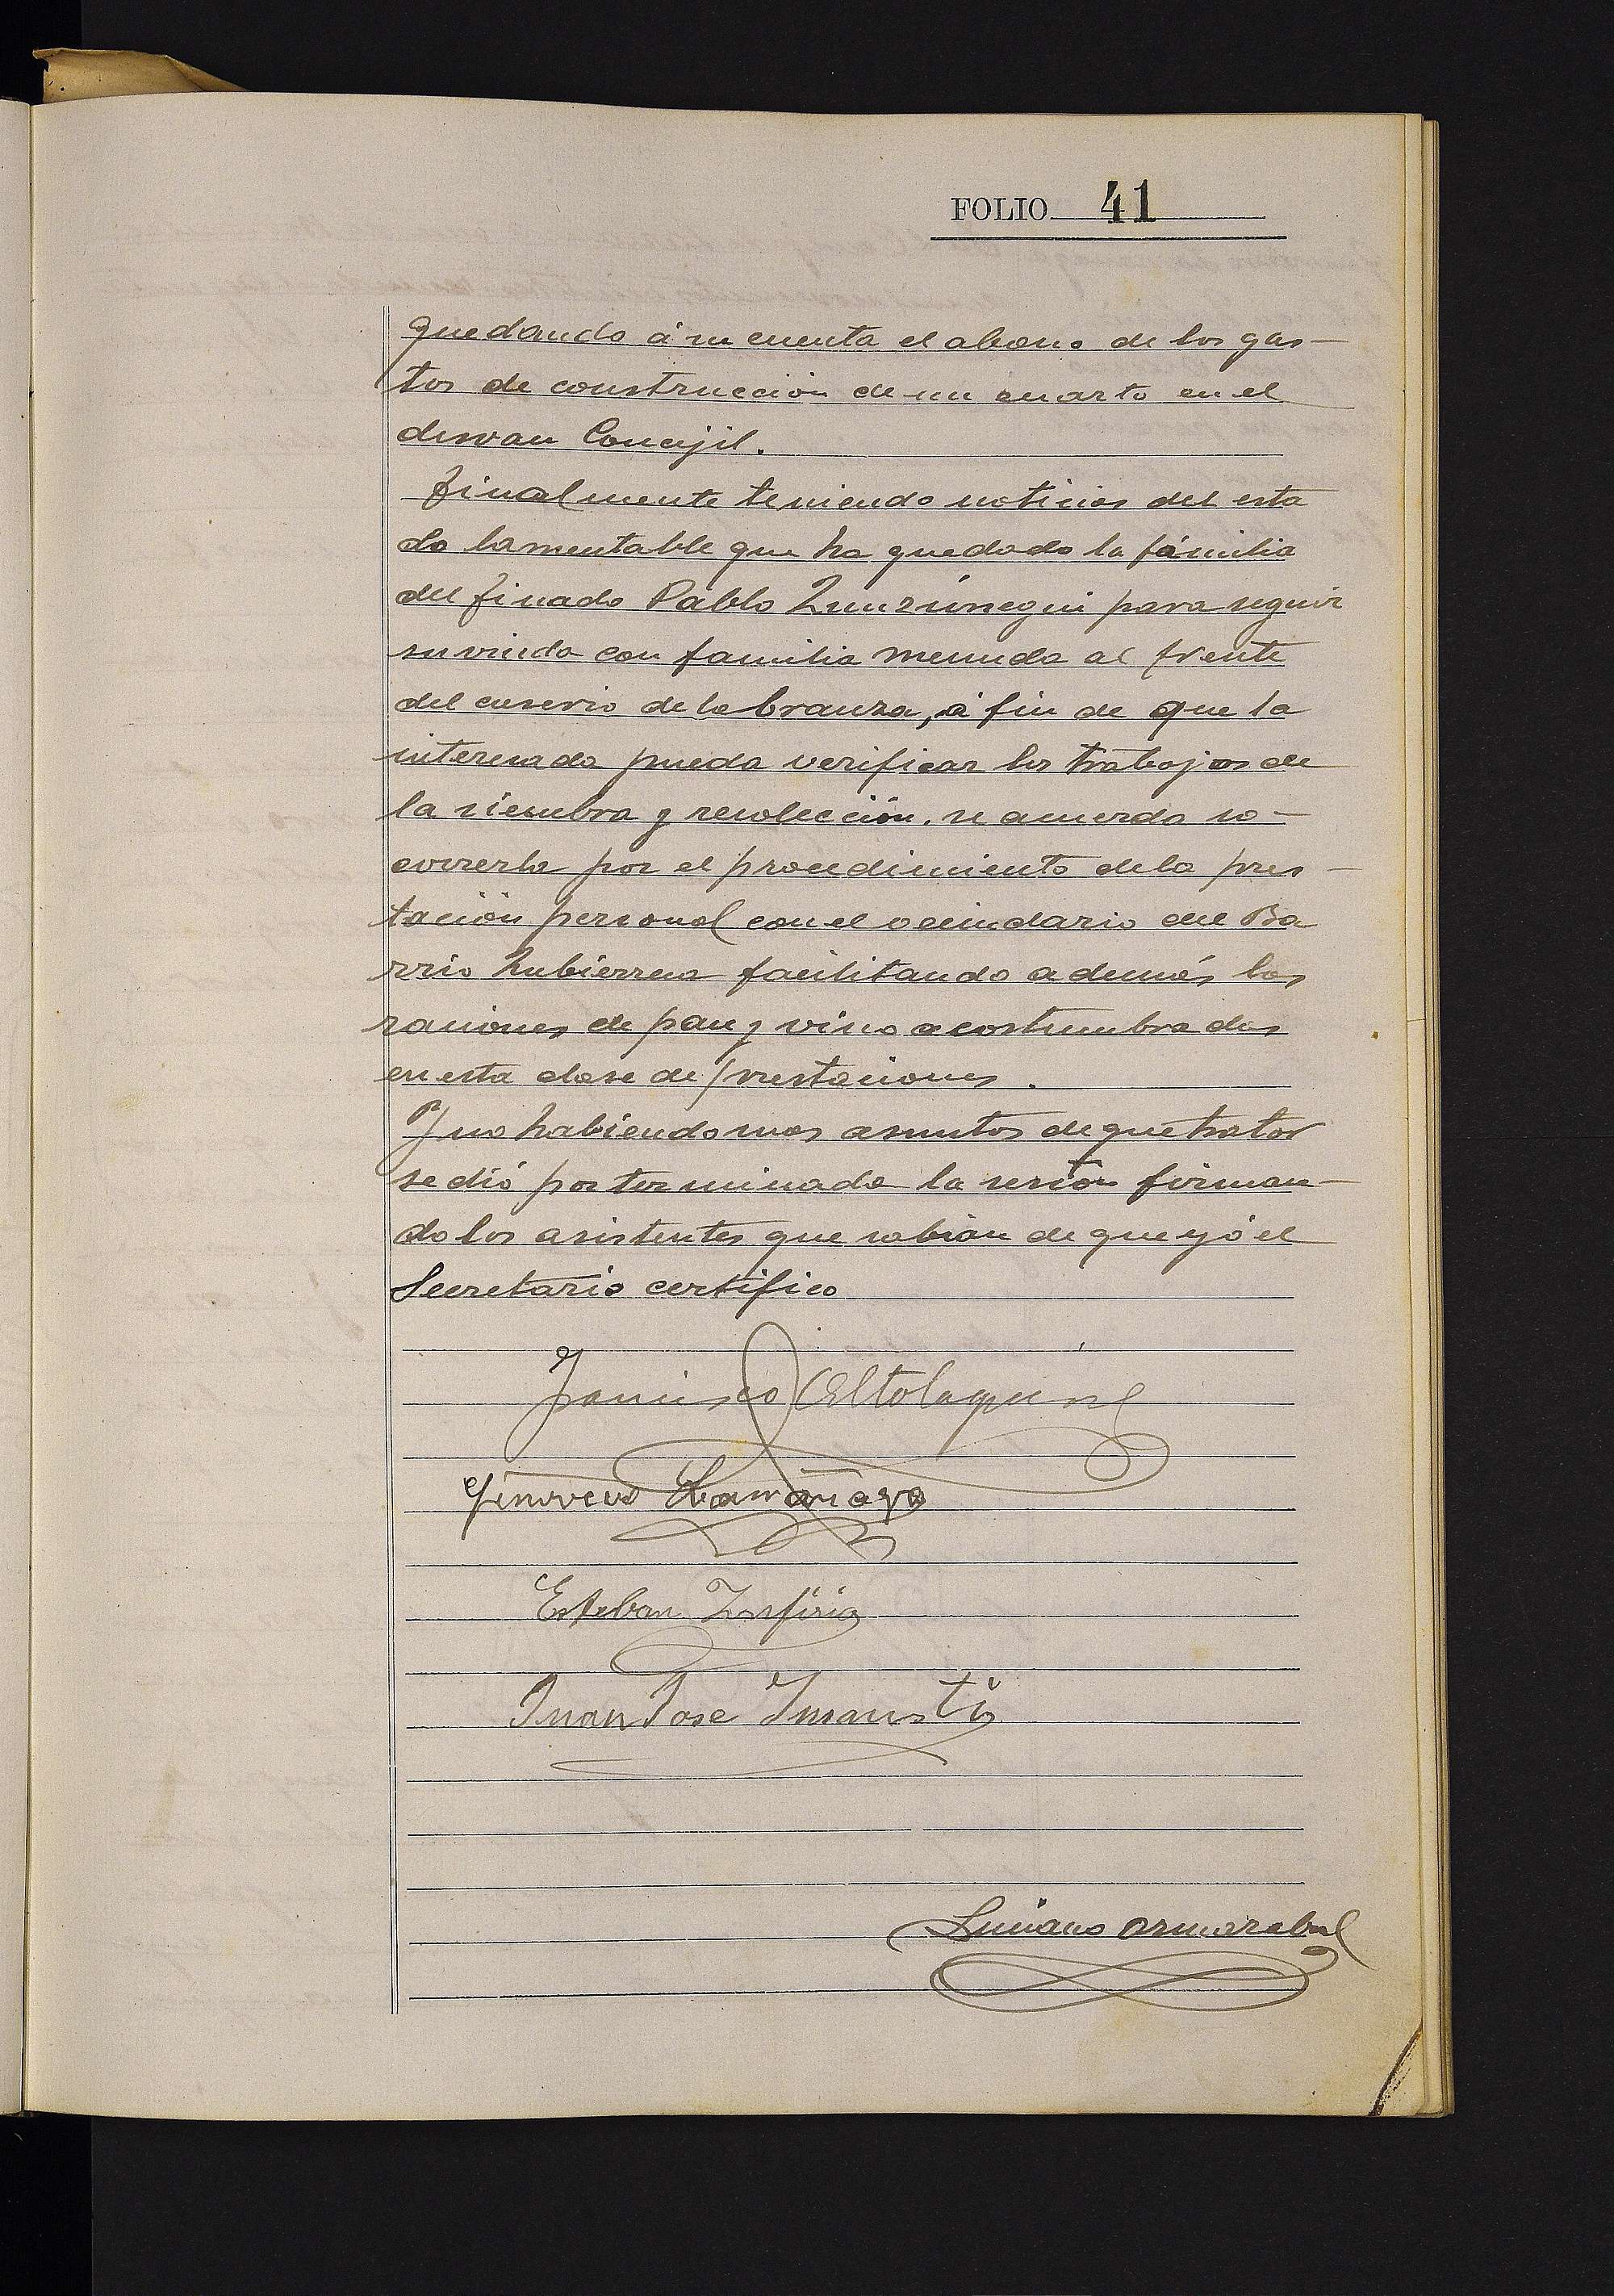 FOLIO 41
quedando á su cuenta el abono de los gas-
tos de construcción de un cuarto en el
desvan Concejil.
Finalmente teniendo noticias del esta
do lamentable que ha quedado la familia
del finado Pablo Zunzúnegui para seguir
su viuda con familia menuda al frente
del caserio de labranza, á fin de que la
interesada pueda verificar los trabajos de
la siembra y recolección, se acuerda so-
correrla por el procedimiento de la pres-
tación personal con el vecindario del Ba
rrio Lubierrea facilitando además las
raciones de pan y vino acostumbradas
en esta clase de prestaciones.
Y no habiendo mas asuntos de que tratar
se dió por terminada la sesión firman-
do los asistentes que sabian de que yó el
Secretario certifico
Francisco Altolaguirre
Esteban
Juan Jose Insausti
Luciano Ormazabal